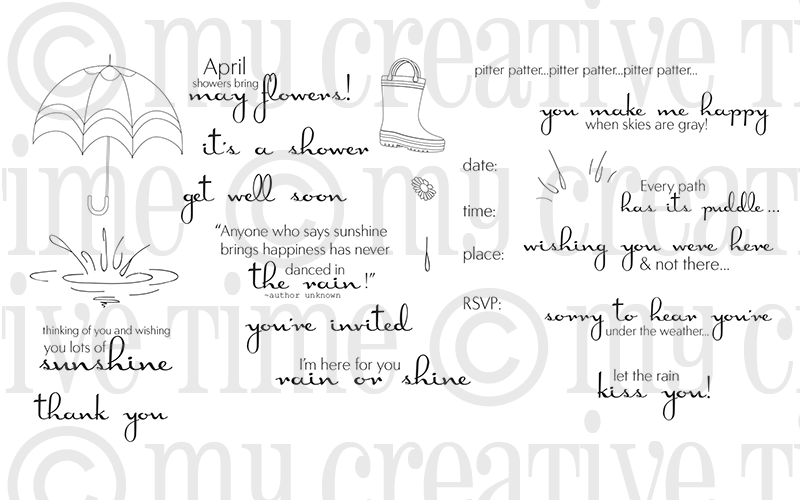 April
showers bring
may flowers!
it's a shower
get well soon
"Anyone who says sunshine
brings happiness has never
danced in
the rain!"
~author unknown
you're invited
I'm here for you
rain or shine
thinking of you and wishing
you lots of
sunshine
thank you
pitter patter...pitter patter...pitter patter...
you make me happy
when skies are gray!
date:
time:
place:
RSVP:
Every path
has its puddle...
wishing you were here
& not there...
sorry to hear you're
under the weather...
let the rain
kiss you!
© my creative time
time © my creative
creative time © my
© my creative time